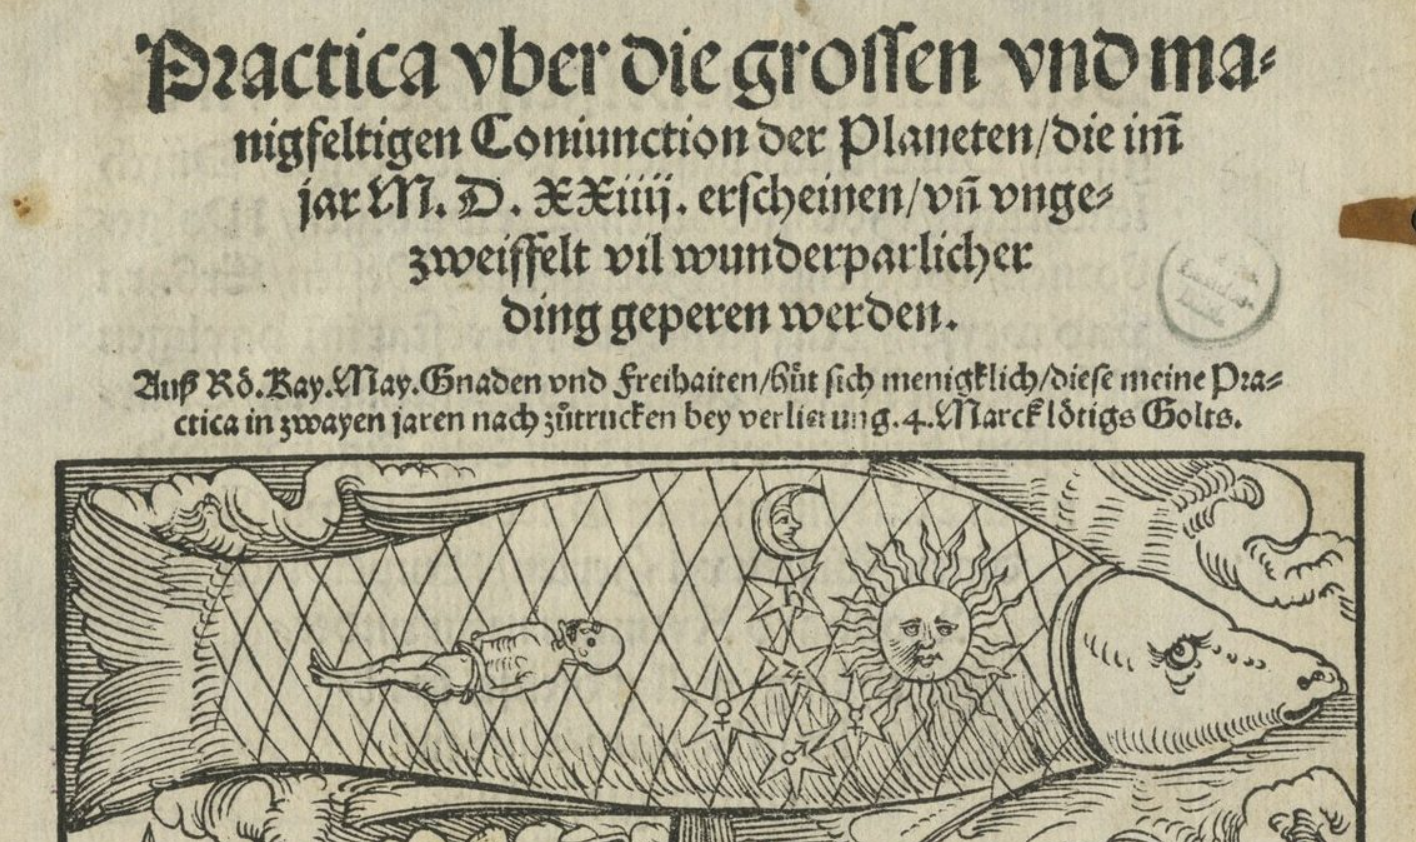 Practica vber die grossen vnd ma-
nigfeltigen Coniunction der Planeten/die im̃
jar M. D. XXiiij. erscheinen/vñ vnge-
zweiffelt vil wunderparlicher
ding geperen werden.
Auß Rö.Kay.May.Gnaden vnd Freihaiten/hüt sich menigklich/diese meine Pra-
ctica in zwayen jaren nach zůtrucken bey verlierung.4.Marck lötigs Golts.